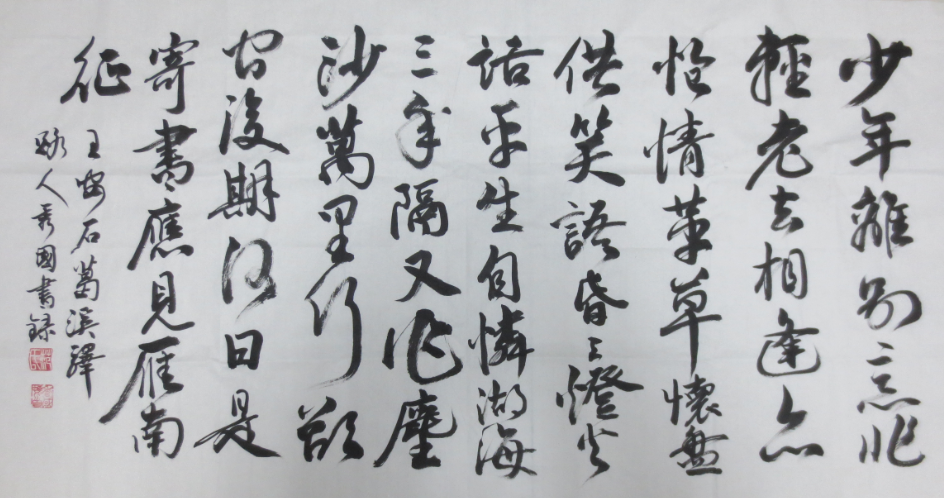 少年離別意非
輕老去相逢亦
愴情草草懷盤
供笑語昏〻燈火
話平生自憐湖海
三年隔又作塵
沙萬里行欲
問後期何日是
寄書應見雁南
征
王安石葛溪驛
人秀國書錄